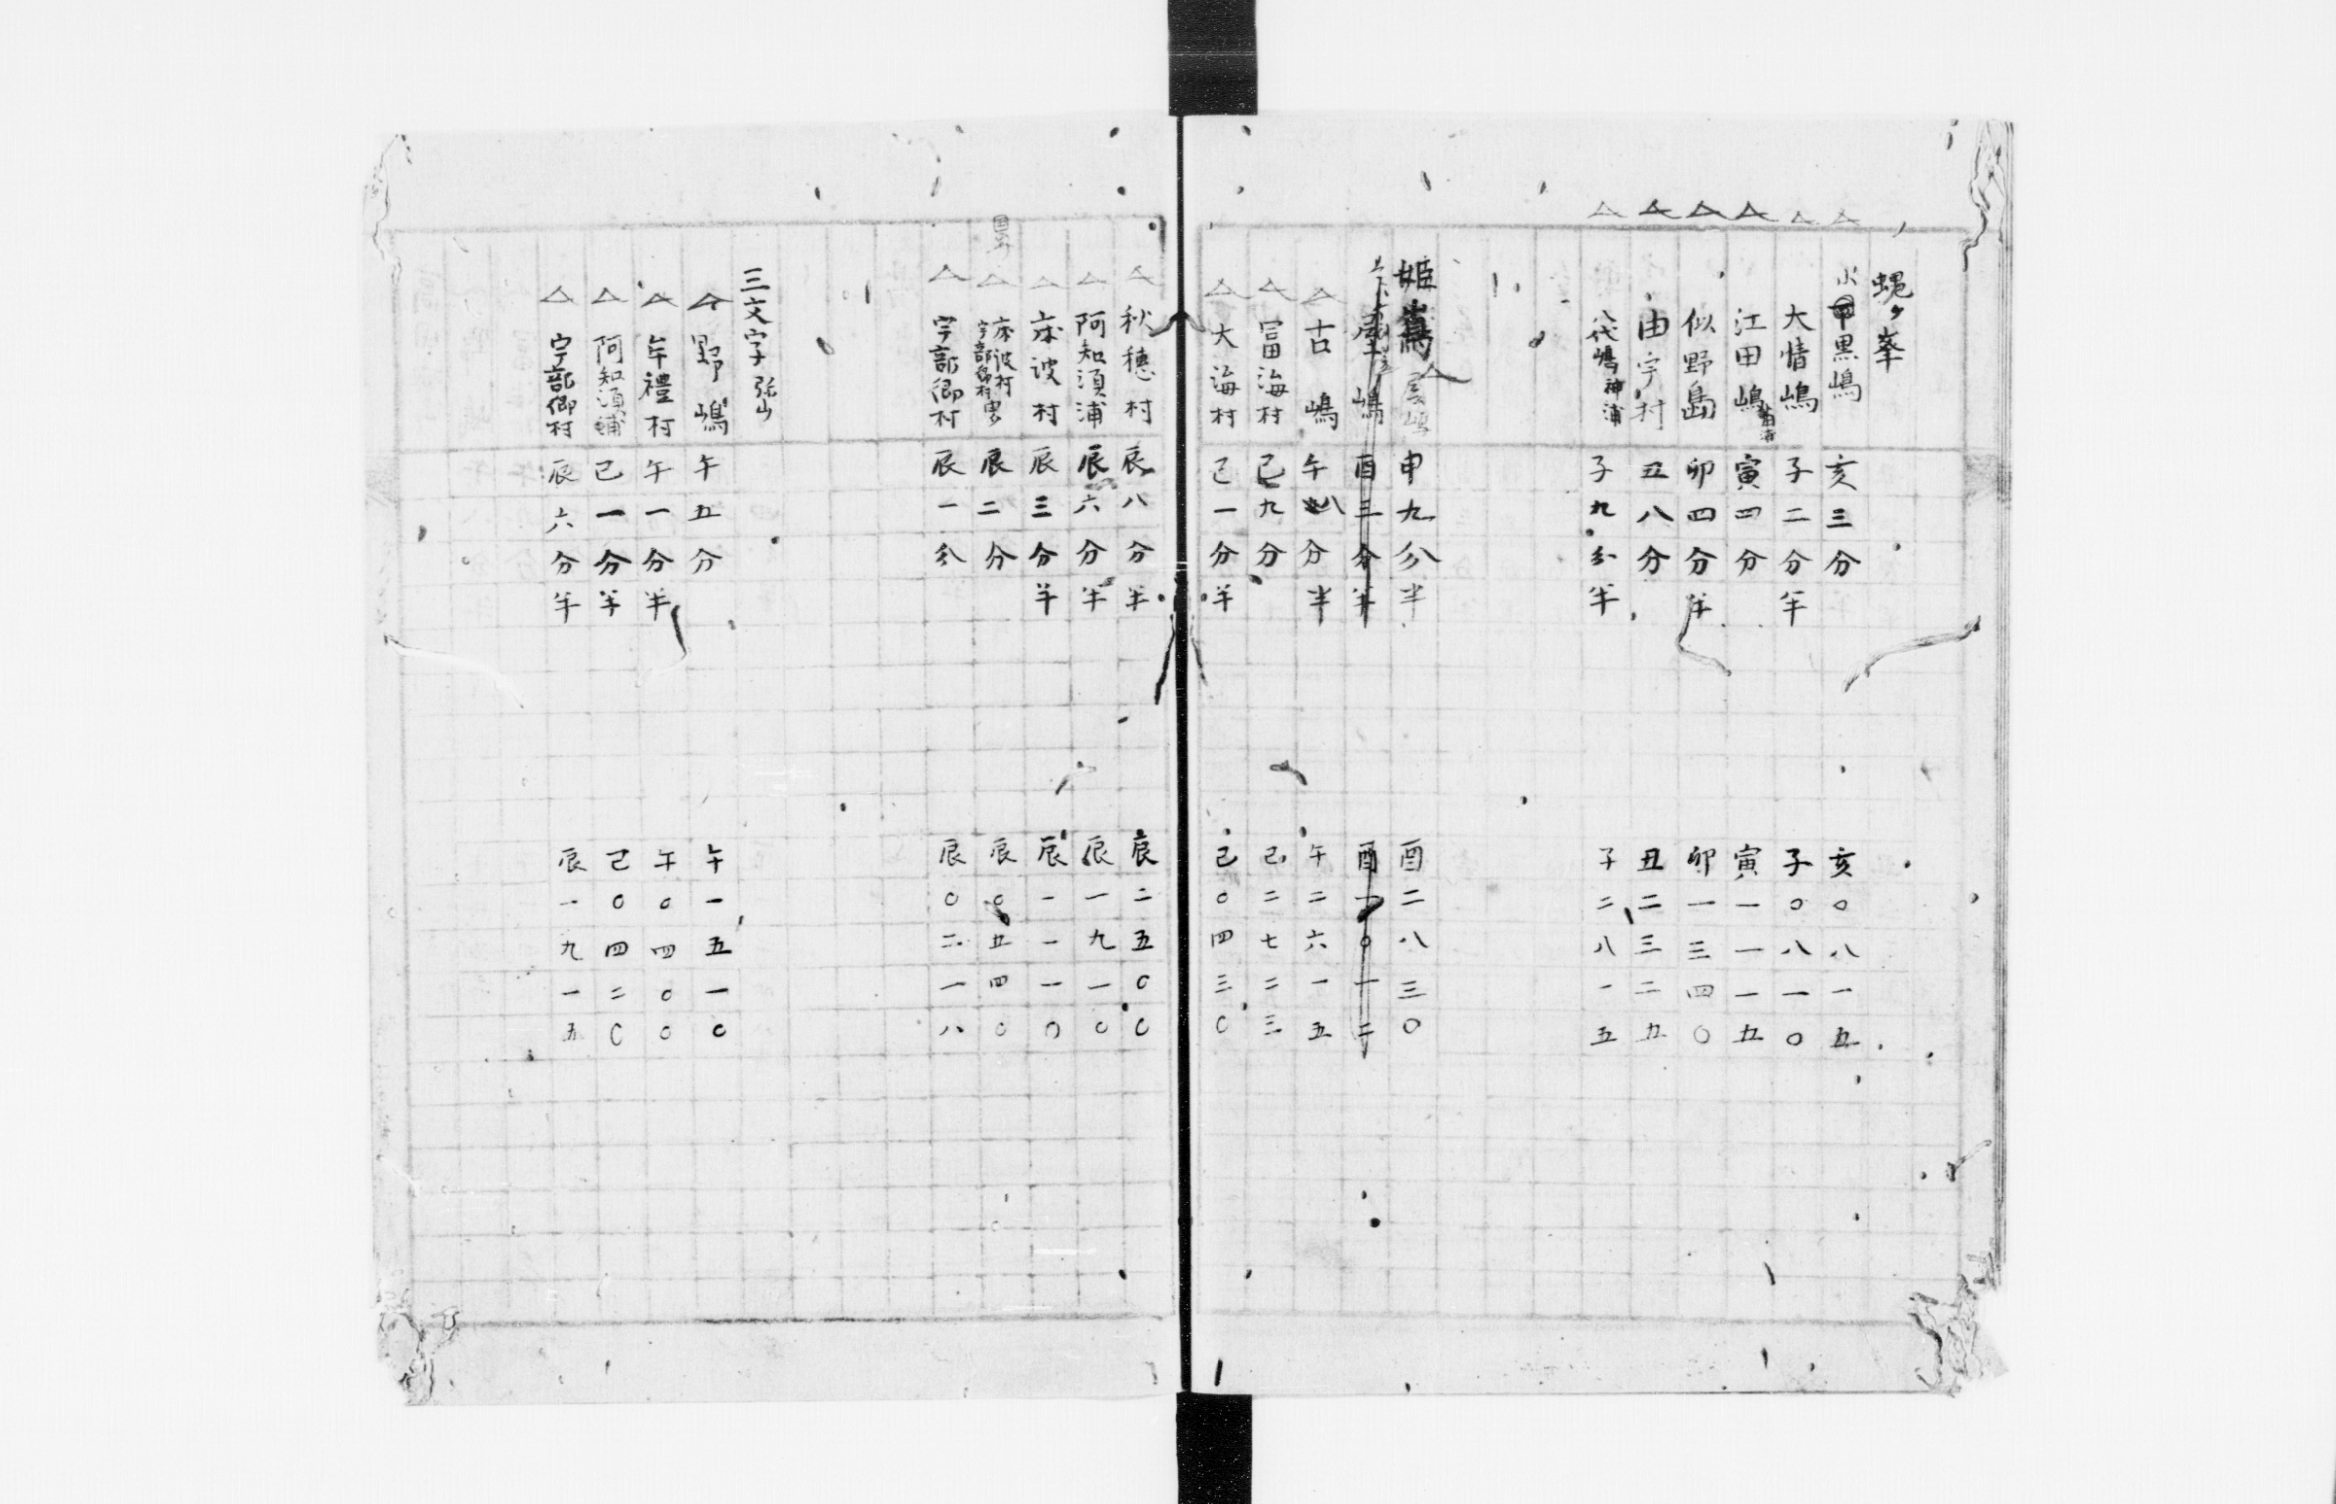 蠅ヶ峯
黒嶋 亥三分 亥〇八一五
大情嶋 子二分半 子〇八一〇
江田嶋 寅四分 寅一一一五
似野島 卯四分半 卯一三四〇
由宇村 丑八分 丑二三二五
八代嶋神浦 子九分半 子二八一五
姫嶌 申九分半 酉二八三〇
嶋 酉三分半 酉一〇一二
古嶋 午八分半 午二六一五
冨海村 己九分 己二七二三
大海村 己一分半 己〇四三〇
秋穂村 辰八分半 辰二五〇〇
阿知須浦 辰六分半 辰一九一〇
床波村 辰三分半 辰一一一〇
床波村 宇部 辰二分 辰〇五四〇
宇部郷村 辰一分 辰〇二一八
三文字 弥山
野嶋 午五分 午一五一〇
牟禮村 午一分半 午〇四〇〇
阿知須浦 己一分半 己〇四二〇
宇部郷村 辰六分半 辰一九一五